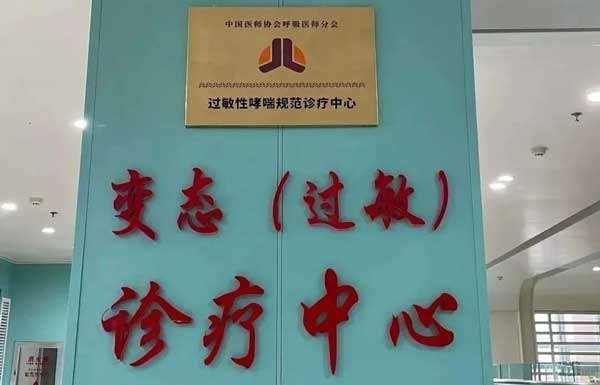 中国医师协会呼吸医师分会
过敏性哮喘规范诊疗中心
变态（过敏）
诊疗中心